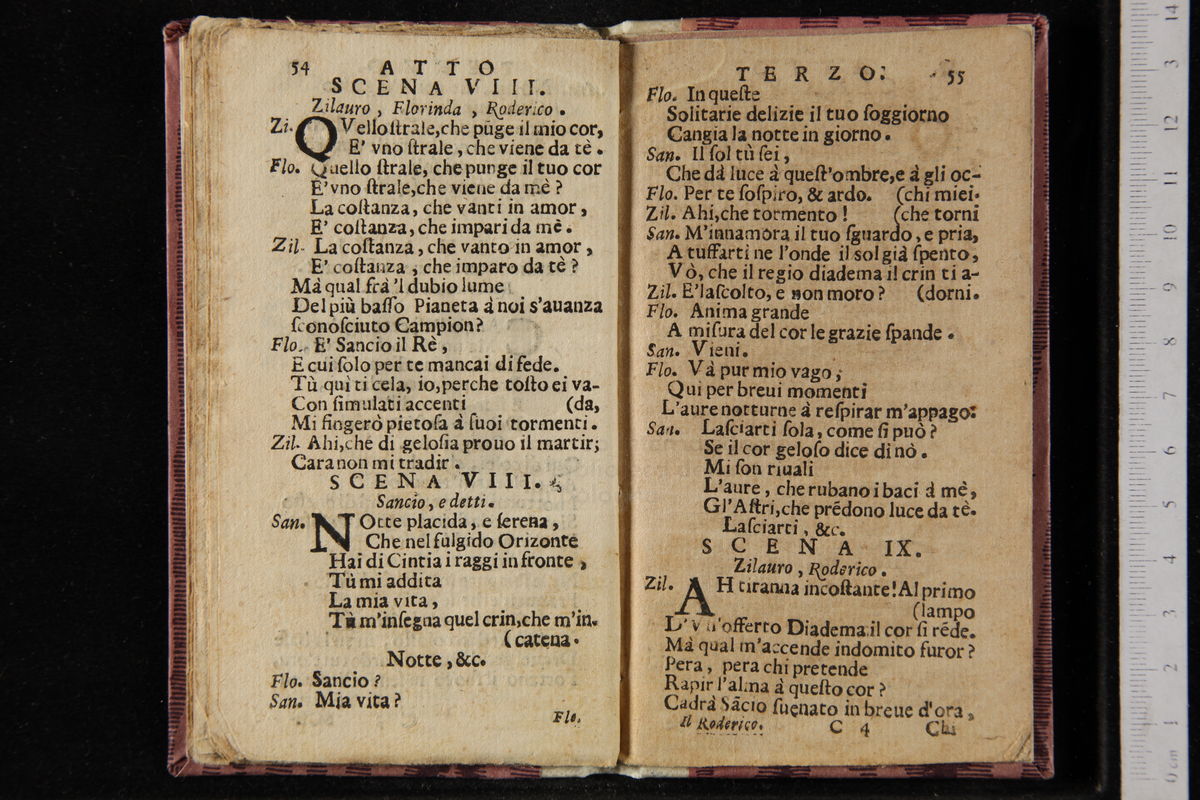 54 ATTO
SCENA VIII.
Zilauro, Florinda, Roderico.
Zi. QVello ſtrale, che pūge il mio cor,
E' vno ſtrale, che viene da tè.
Flo. Quello ſtrale, che punge il tuo cor
E' vno ſtrale, che viene da mè?
La coſtanza, che vanti in amor,
E' coſtanza, che impari da mè.
Zil. La coſtanza, che vanto in amor,
E' coſtanza, che imparo da tè?
Mà qual frà 'l dubio lume
Del più baſſo Pianeta à noi s'auanza
ſconoſciuto Campion?
Flo. E' Sancio il Rè,
E cui ſolo per te mancai di fede.
Tù qui ti cela, io, perche toſto ei va-
Con ſimulati accenti (da,
Mi fingerò pietoſa à ſuoi tormenti.
Zil. Ahi, che di geloſia prouo il martir;
Cara non mi tradir.
SCENA VIII.
Sancio, e detti.
San. NOtte placida, e ſerena,
Che nel fulgido Orizonte
Hai di Cintia i raggi in fronte,
Tù mi addita
La mia vita,
Tù m'inſegna quel crin, che m'in-
(catena.
Notte, &c.
Flo. Sancio?
San. Mia vita?
Flo.
TERZO: 55
Flo. In queſte
Solitarie delizie il tuo ſoggiorno
Cangia la notte in giorno.
San. Il ſol tù ſei,
Che dà luce à queſt'ombre, e à gli oc-
Flo. Per te ſoſpiro, & ardo. (chi miei.
Zil. Ahi, che tormento! (che torni
San. M'innamora il tuo ſguardo, e pria,
A tuffarti ne l'onde il sol già ſpento,
Vò, che il regio diadema il crin ti a-
Zil. E' l'aſcolto, e non moro? (dorni.
Flo. Anima grande
A miſura del cor le grazie ſpande.
San. Vieni.
Flo. Và pur mio vago,
Qui per breui momenti
L'aure notturne à reſpirar m'appago:
San. Laſciarti ſola, come ſi può?
Se il cor geloſo dice di nò.
Mi ſon riuali
L'aure, che rubano i baci à mè,
Gl'Aſtri, che prēdono luce da tè.
Laſciarti, &c.
SCENA IX.
Zilauro, Roderico.
Zil. AH tiranna incoſtante! Al primo
(lampo
L'Vn'offerto Diadema il cor ſi rēde.
Mà qual m'accende indomito furor?
Pera, pera chi pretende
Rapir l'alma à queſto cor?
Cadrà Sācio ſuenato in breue d'ora,
Il Roderico. C 4 Chi